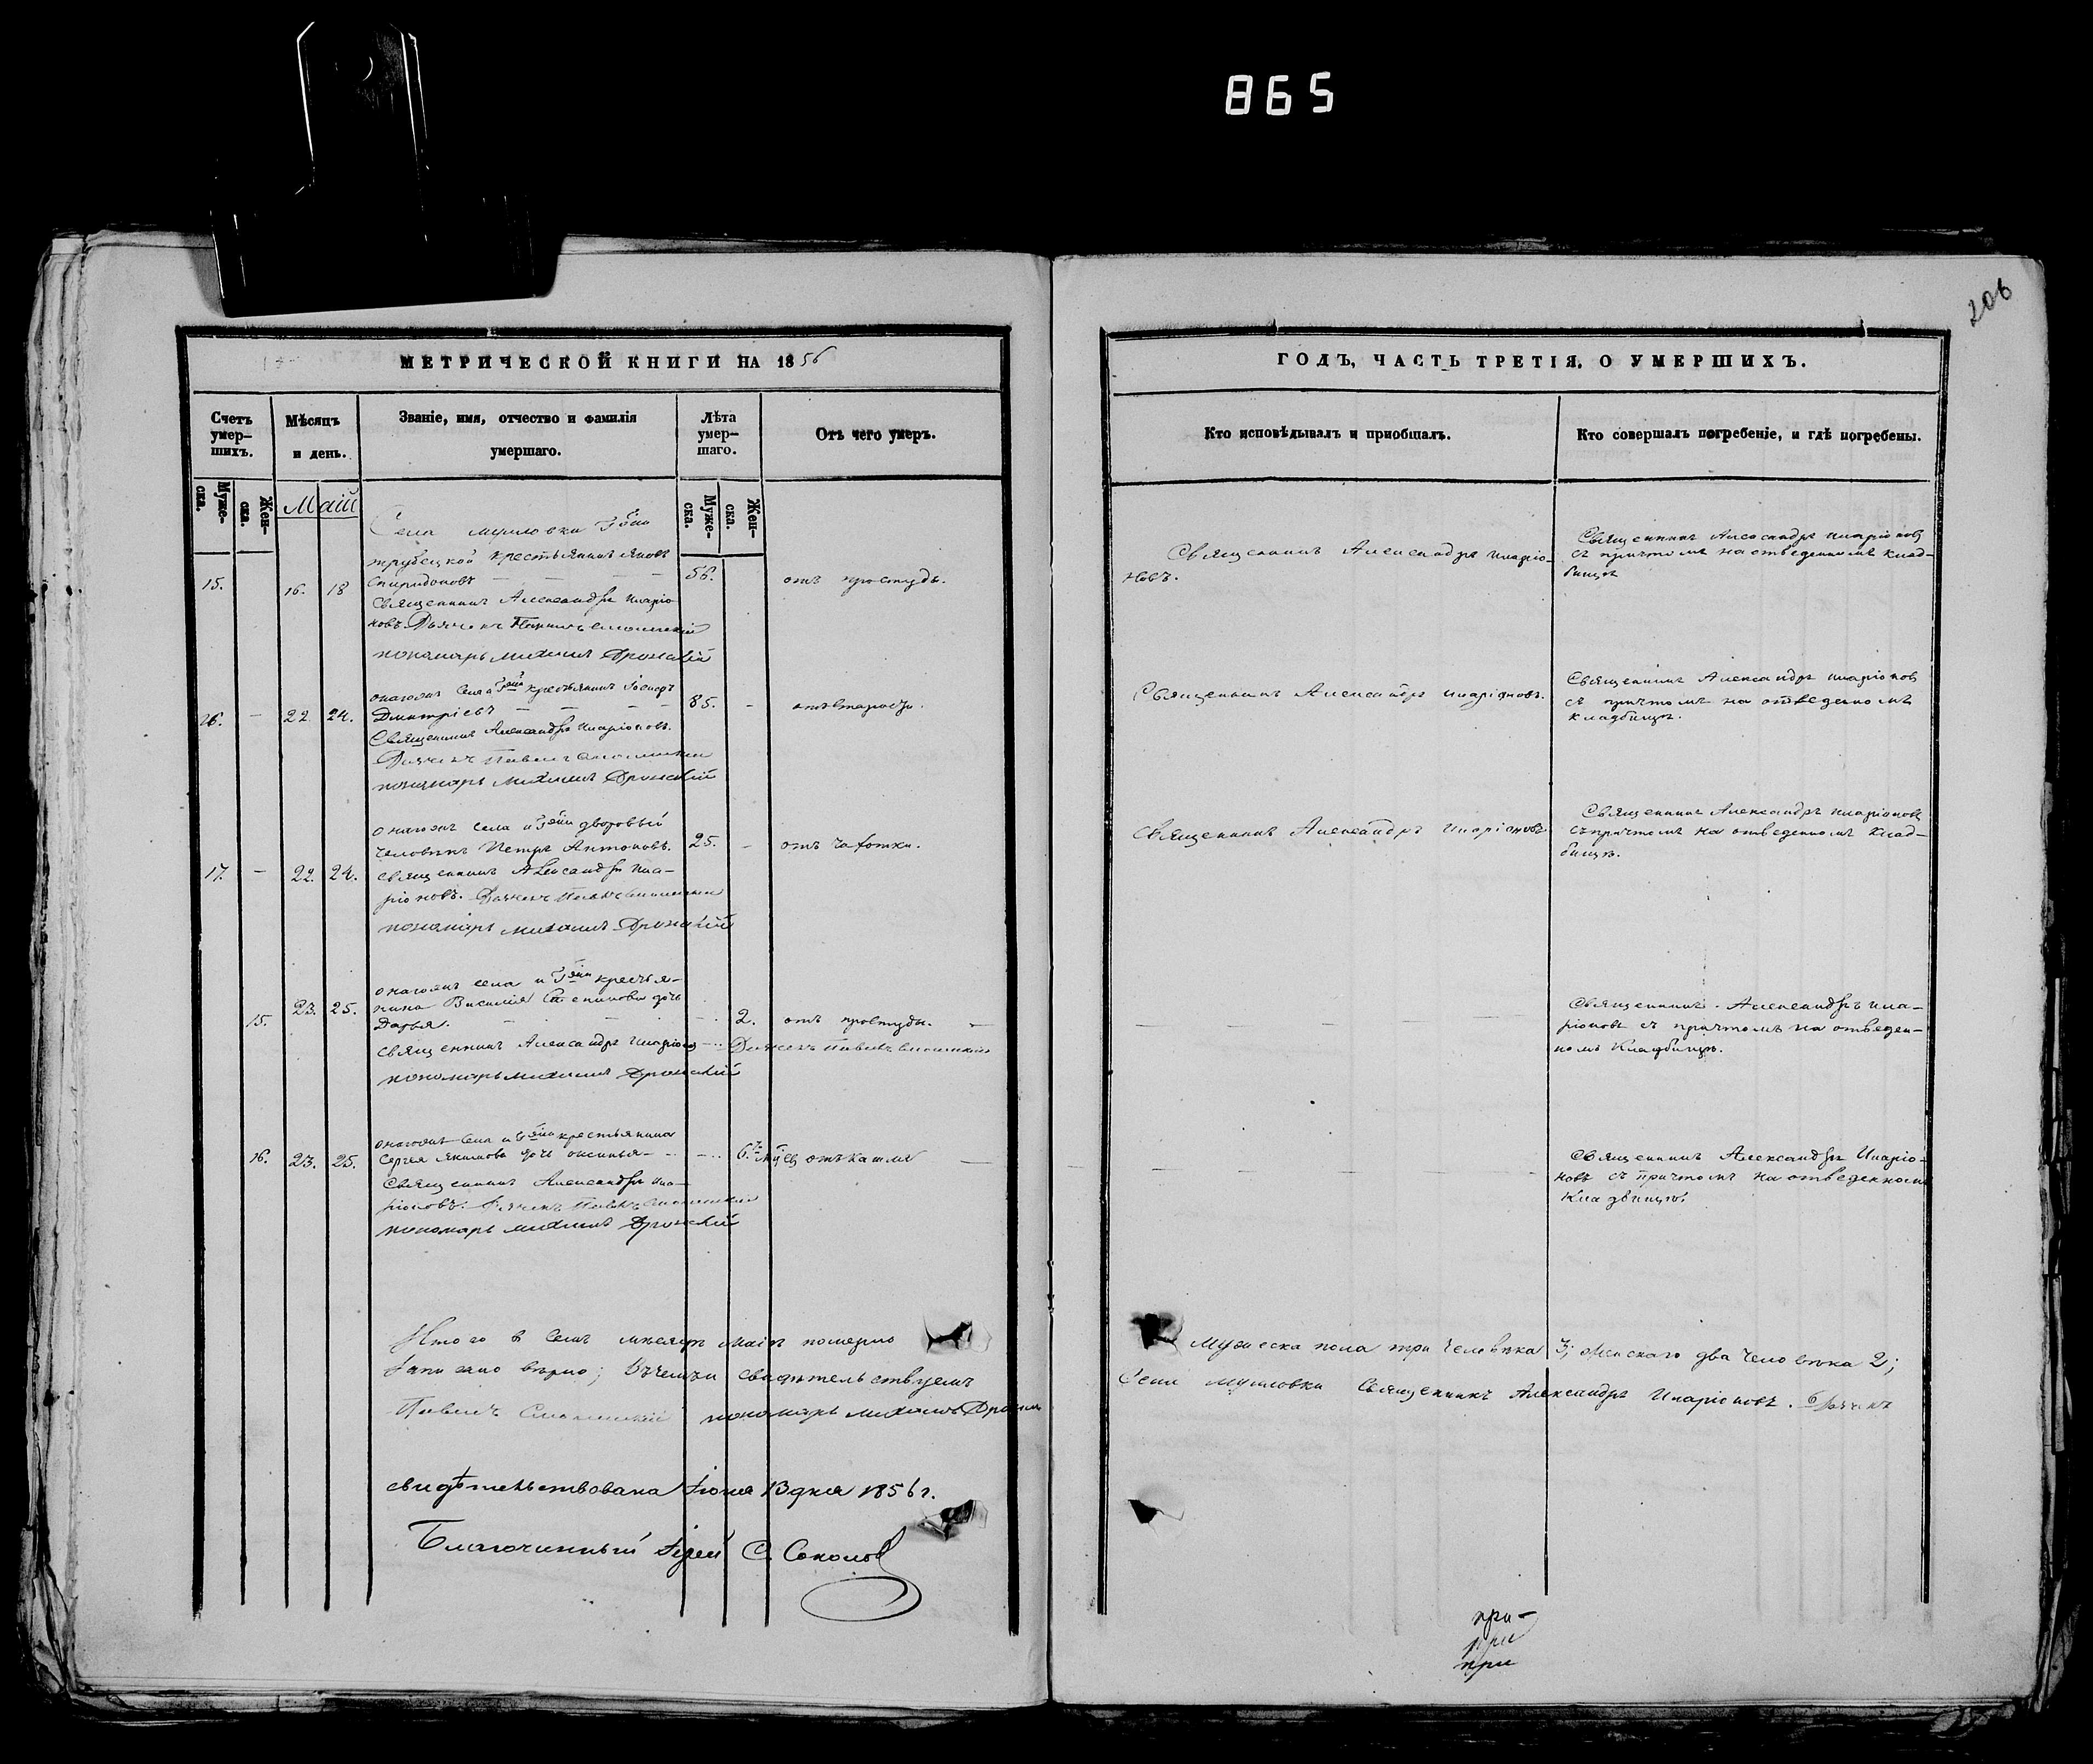 865
206
МЕТРИЧЕСКОЙ КНИГИ НА 1856
ГОДЪ, ЧАСТЬ ТРЕТІЯ, О УМЕРШИХЪ.
Счетъ умер-
шихъ.
Мѣсяцъ
и день.
Званіе, имя, отчество и фамилія
умершаго.
Лѣта
умер-
шаго.
Отъ чего умеръ.
Кто исповѣдывалъ и приобщалъ.
Кто совершалъ погребеніе, и гдѣ погребены.
Муже-
ска.
Жен-
ска.
Муже-
ска.
Жен-
ска.
Маій
Села
трубецкой крестьянинъ Яковъ
15. 16. 18 Спиридоновъ 56. отъ простуды.
Священникъ Александръ Иларіо-
новъ Дьячекъ Павелъ Смоленскій
пономарь Михаилъ Дронскій
Священникъ Александръ Иларіо-
новъ.
Священникъ Александръ Иларіоновъ
съ причтомъ на отведенномъ клад-
бищѣ
онагожъ села крестьянинъ
16. – 22 24. Дмитріевъ 85. – отъ старости.
Священникъ Александръ Иларіоновъ.
Дьячекъ Павелъ Смоленскій
пономарь Михаилъ Дронскій
Священникъ Александръ Иларіоновъ.
Священникъ Александръ Иларіоновъ
съ причтомъ на отведенномъ
кладбищѣ.
онагожъ села и дворовый
человѣкъ Петръ Антоновъ. 25. – отъ чахотки.
17. – 22. 24. священникъ Александръ Ила-
ріоновъ. Дьячекъ Павелъ Смоленскій
пономарь Михаилъ Дронскій
Священникъ Александръ Иларіоновъ
Священникъ Александръ Иларіоновъ
съ причтомъ на отведенномъ клад-
бищѣ.
онагожъ села и крестья-
нина Василія Степанова дочь
15. 23. 25. Дарья. 2. отъ простуды.
священникъ Александръ Иларіоновъ Дьячекъ Павелъ Смоленскій
пономарь Михаилъ Дронскій
Священникъ Александръ Ила-
ріоновъ съ причтомъ на отведен-
номъ Кладбищѣ.
онагожъ села и крестьянина
16. 23. 25. Сергея Якимова дочь 6. отъ кашля
Священникъ Александръ Ила-
ріоновъ. Дьячекъ Павелъ Смоленскій
пономарь Михаилъ Дронскій
Священникъ Александръ Иларіо-
новъ съ причтомъ на отведенномъ
Кладбищѣ.
Итого в семъ мѣсяцѣ Маіѣ померло
Мужеска пола три человѣка 3; женскаго два человѣка 2;
записано вѣрно; въ чемъ и свидѣтельствуемъ
Села Священникъ Александръ Иларіоновъ. Дьячекъ
Павелъ Смоленскій пономарь Михаилъ Дронскій
свидѣтельствована Іюня 13 дня 1856 г.
Благочинный Іерей С. Соколов
при-
при
при